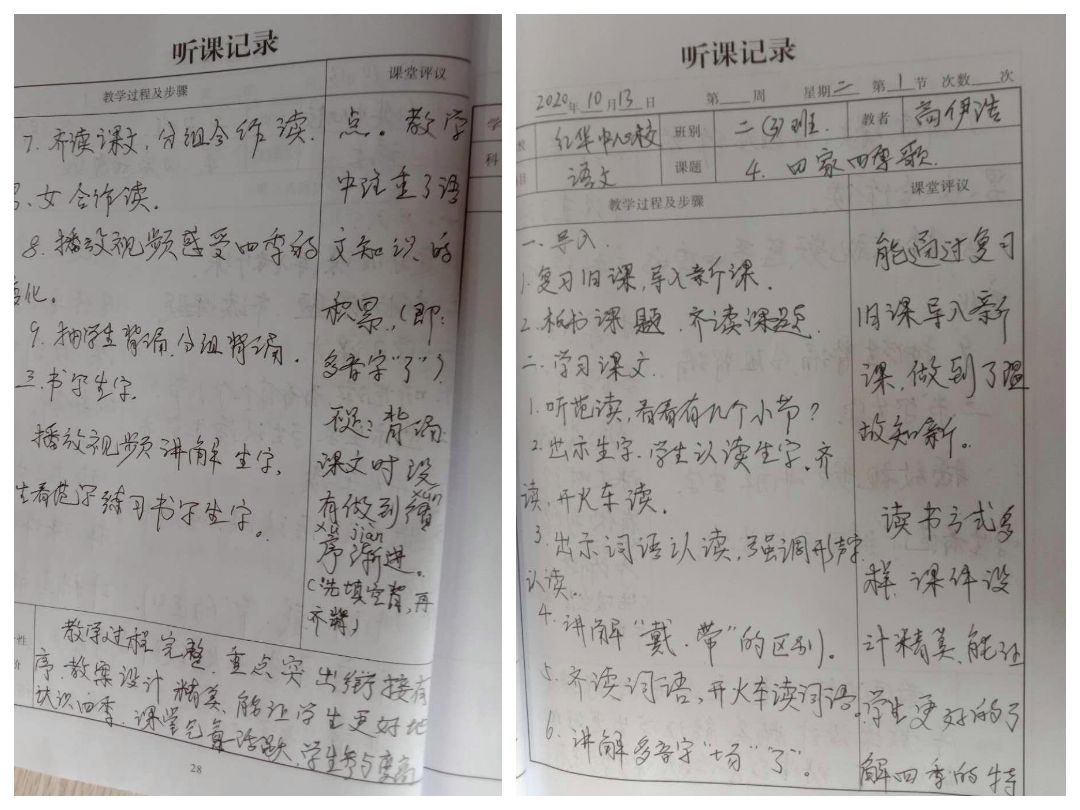 听课记录
教学过程及步骤
课堂评议
7. 齐读课文, 分组合作读.
男、女合作读.
8. 播放视频感受四季的
变化.
9. 抽学生背诵, 分组背诵.
三. 书写生字.
播放视频讲解生字,
生看范字练习书写生字。
点。教学
中注重了语
文知识的
积累, (即:
多音字“了”)
不足: 背诵
课文时没
有做到
xun
xu jian
序渐进。
(先填空背, 再
齐背)
教学过程完整, 重点突出衔接有
序. 教案设计精美, 能让学生更好地
认识四季. 课堂气氛活跃, 学生参与度高
28
听课记录
2020年10月13日 第 周 星期二 第1节 次数 次
校 红华中心校 班别 二(3)班. 教者 高伊浩
科目 语文 课题 4. 田家四季歌.
教学过程及步骤
课堂评议
一. 导入.
1. 复习旧课, 导入新课.
2. 板书课题. 齐读课题.
二. 学习课文.
1. 听范读, 看看有几个小节?
2. 出示生字. 学生认读生字. 齐
读, 开火车读.
3. 出示词语认读, 强调形声字
认读.
4. 讲解“戴、带”的区别).
5. 齐读词语, 开火车读词语。
6. 讲解多音字“场”“了”。
能通过复习
旧课导入新
课, 做到了温
故知新。
读书方式多
样. 课件设
计精美, 能让
学生更好的了
解四季的特